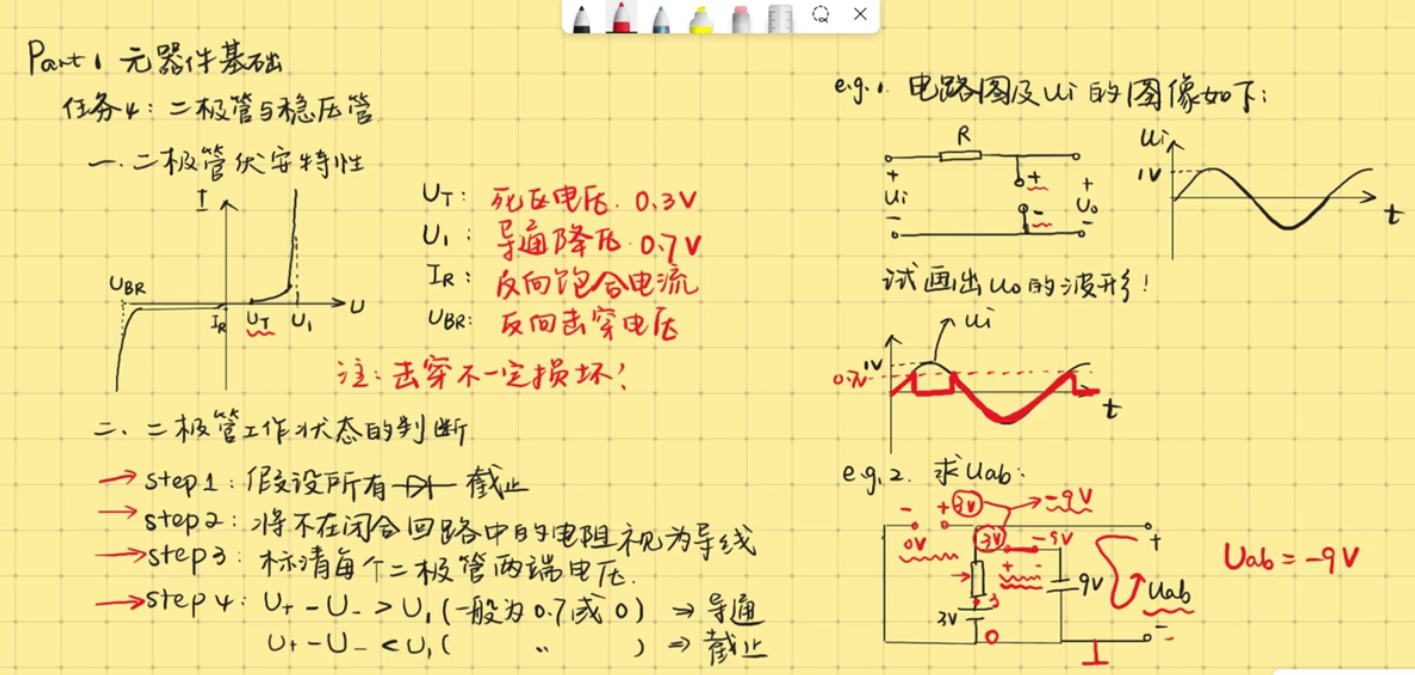 Part 1 元器件基础
任务4: 二极管与稳压管
一. 二极管伏安特性
I
UBR
IR
UT
U1
U
UT: 死区电压. 0.3V
U1: 导通降压. 0.7V
IR: 反向饱合电流
UBR: 反向击穿电压
注: 击穿不一定损坏!
二、二极管工作状态的判断
→ step1: 假设所有 截止
→ step2: 将不在闭合回路中的电阻视为导线
→ step3: 标清每个二极管两端电压.
→ step4: U+ - U- > U1 (一般为0.7或0) ⇒ 导通
U+ - U- < U1 ( " ) ⇒ 截止
e.g.1. 电路图及ui的图像如下:
R
+
Ui
-
+
-
+
Uo
-
Ui
1V
t
试画出uo的波形!
ui
1V
0.7V
t
e.g.2. 求Uab:
- + 3V → -9V
0V 3V -9V
+ -
3
3V
0
9V
+
Uab
-
Uab = -9V